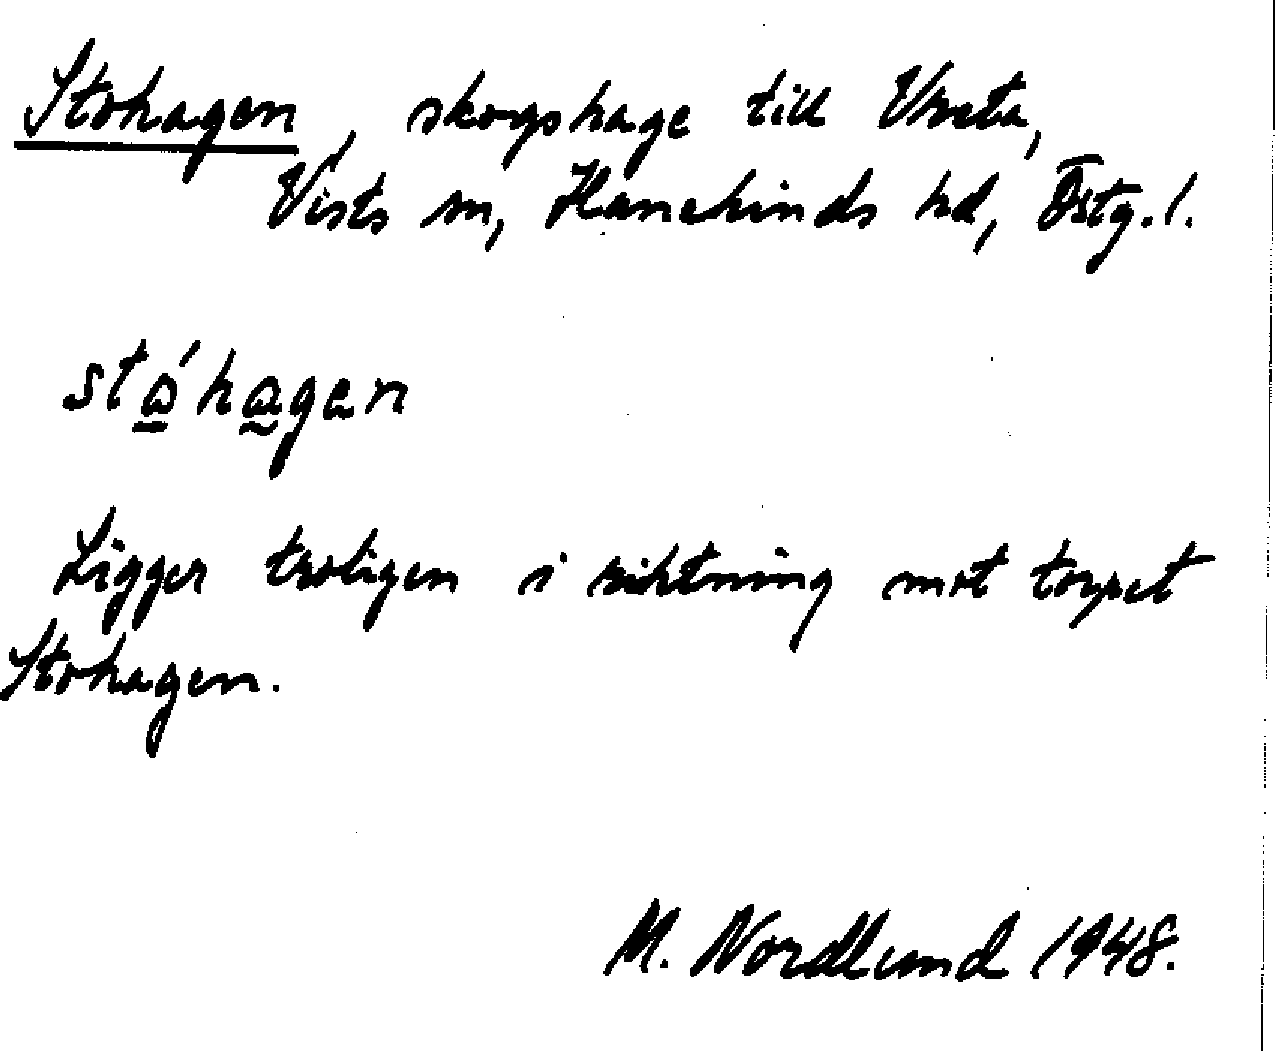 Stohagen, skogshage till Vreta,
Vists sn, Hanekinds hd, Östg. l.
stó̲ha̰gen
Ligger troligen i riktning mot torpet
Stohagen.
M. Nordlund 1948.